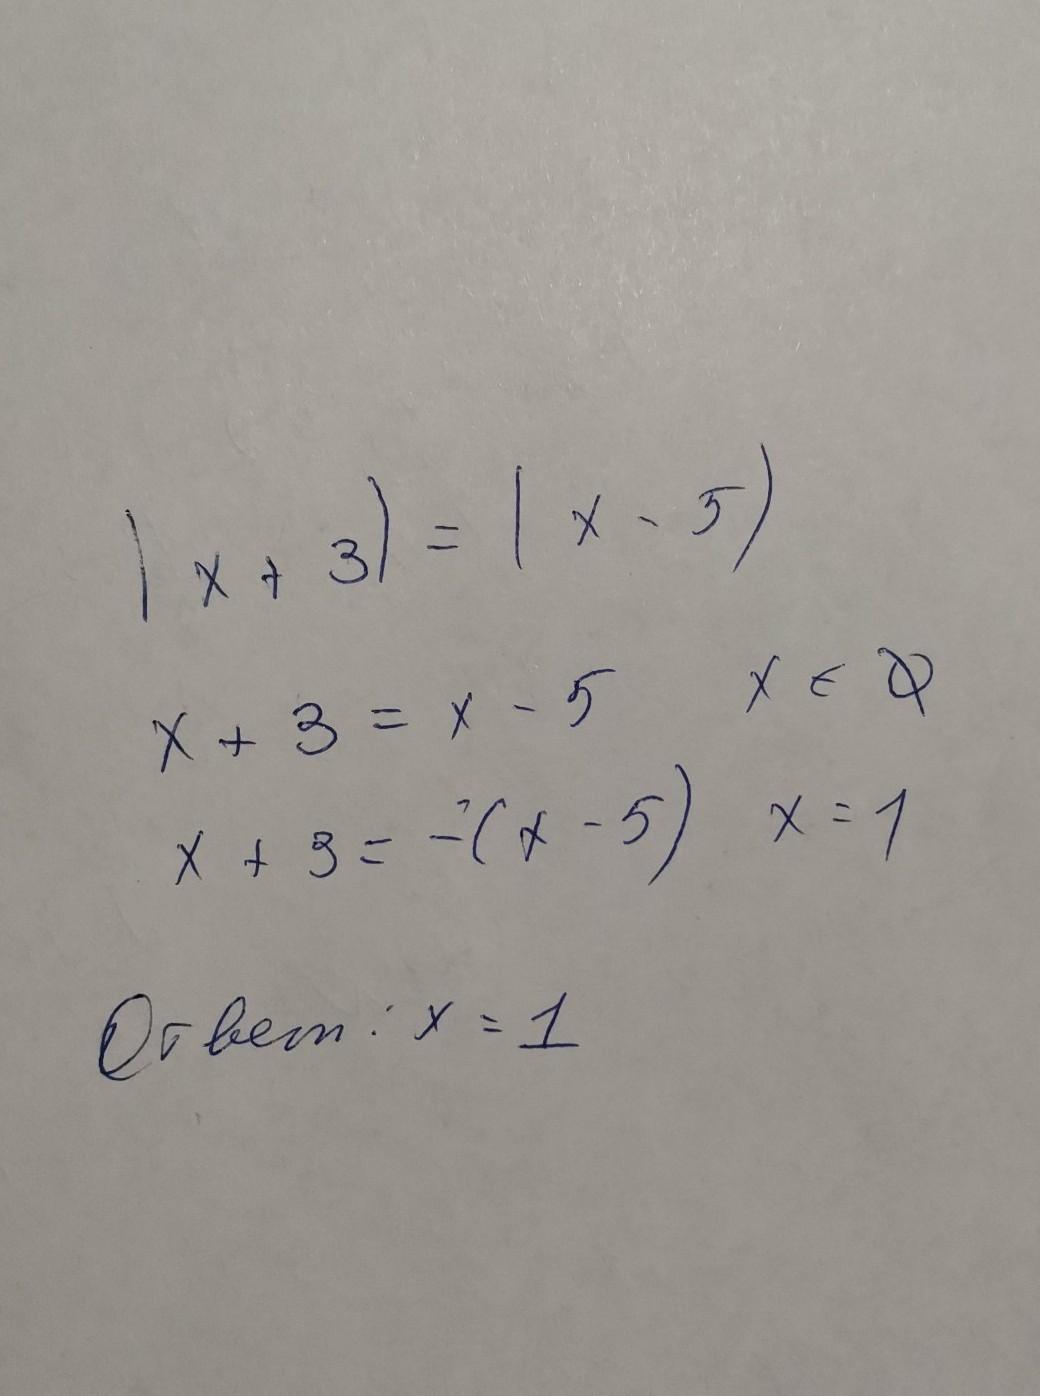 |x + 3| = |x - 5|
x + 3 = x - 5 x ∈ ∅
x + 3 = -(x - 5) x = 1
Ответ: x = 1